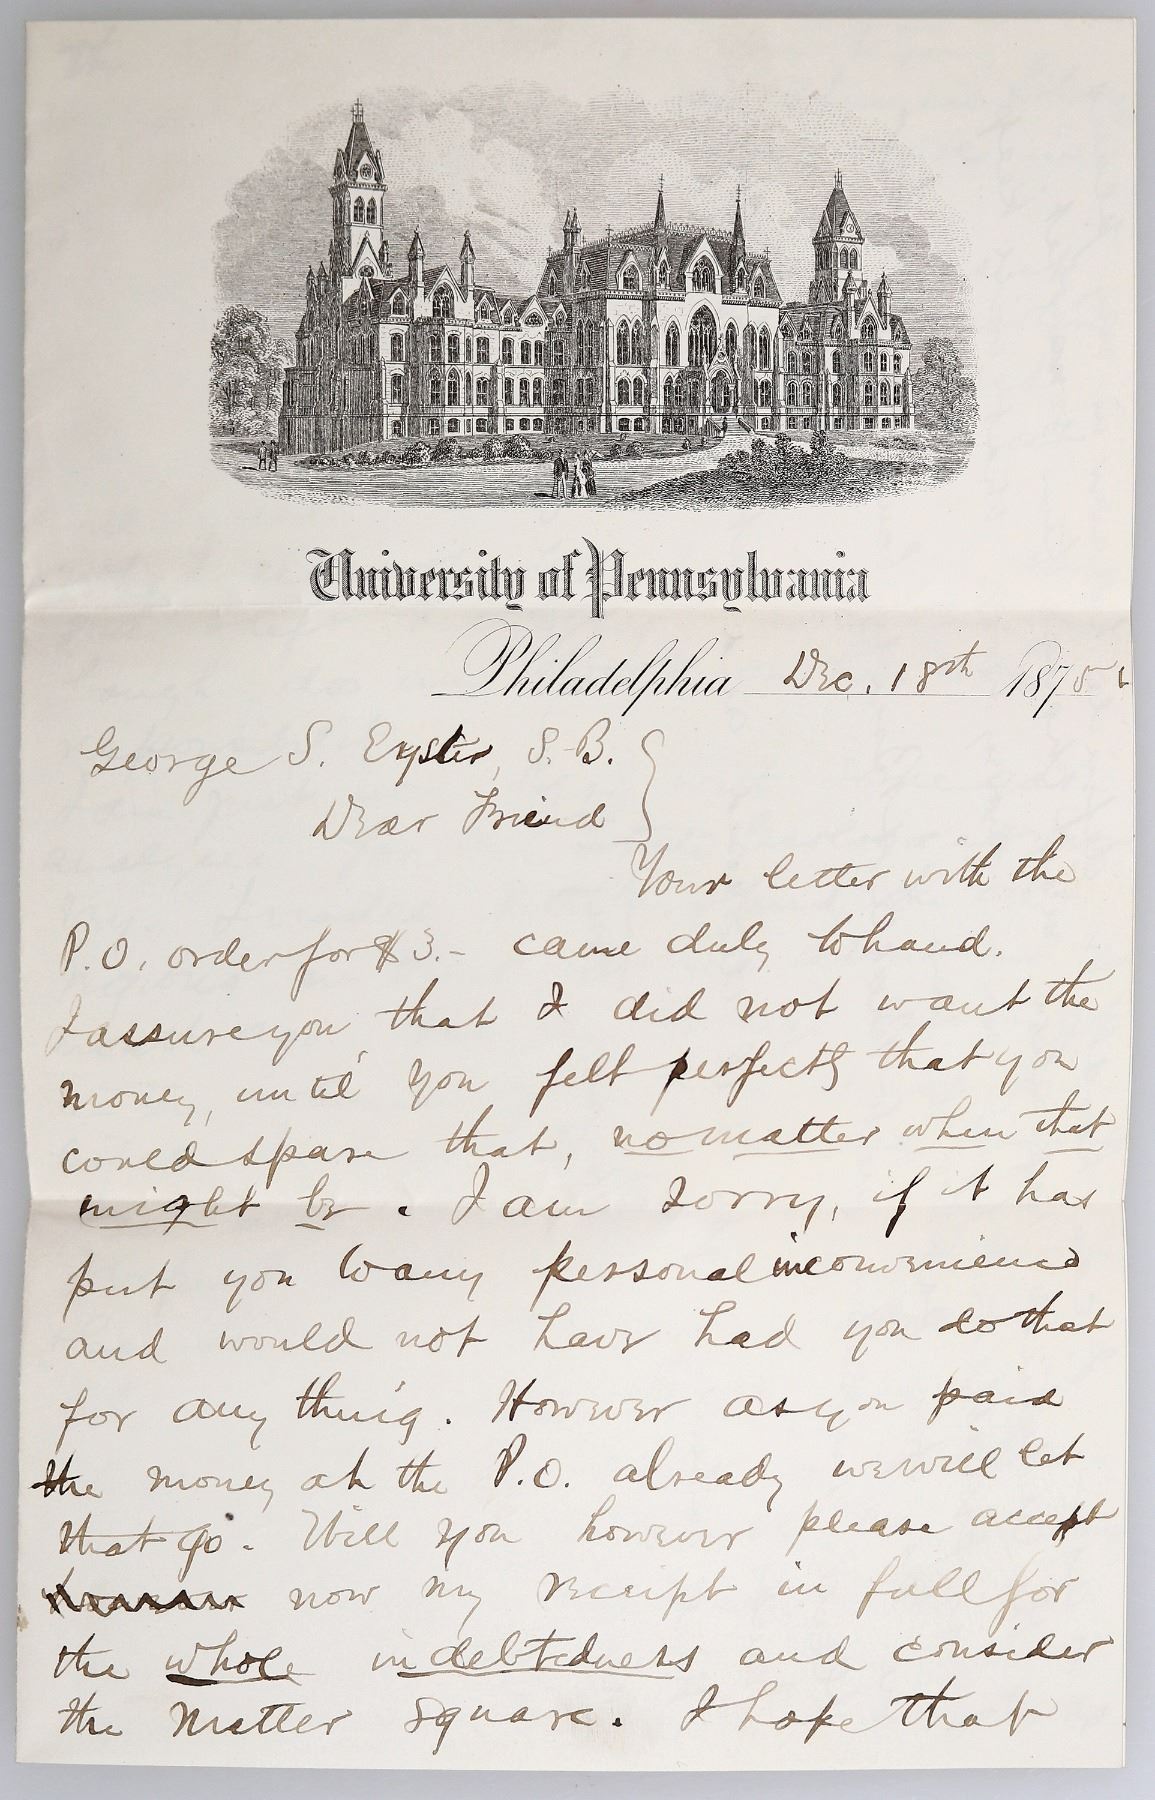 University of Pennsylvania
Philadelphia Dec. 18th 1875
George S. Eyster, S.B.
Dear Friend
Your letter with the
P.O. order for $3.- came duly to hand.
I assure you that I did not want the
money, until you felt perfectly that you
could spare that, no matter when that
might be. I am sorry, if it has
put you to any personal inconvenience
and would not have had you do that
for any thing. However as you paid
the money at the P.O. already we will let
that go. Will you however please accept
now my receipt in full for
the whole indebtedness and consider
the matter square. I hope that